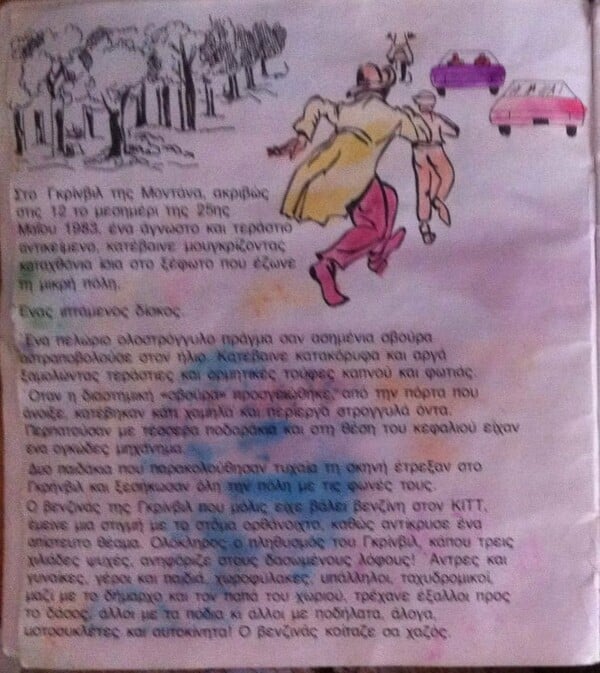 Στο Γκρίνβιλ της Μοντάνα, ακριβώς
στις 12 το μεσημέρι της 25ης
Μαΐου 1983, ένα άγνωστο και τεράστιο
αντικείμενο, κατέβαινε μουγκρίζοντας
καταχθόνια ίσια στο ξέφωτο που έζωνε
τη μικρή πόλη.
Ένας ιπτάμενος δίσκος.
Ένα πελώριο ολοστρόγγυλο πράγμα σαν ασημένια σβούρα
αστραποβολούσε στον ήλιο. Κατέβαινε κατακόρυφα και αργά
ξαμολώντας τεράστιες και ορμητικές τούφες καπνού και φωτιάς.
Όταν η διαστημική «σβούρα» προσγειώθηκε, από την πόρτα που
άνοιξε, κατέβηκαν κάτι χαμηλά και περίεργα στρογγυλά όντα.
Περπατούσαν με τέσσερα ποδαράκια και στη θέση του κεφαλιού είχαν
ένα ογκώδες μηχάνημα.
Δυο παιδάκια που παρακολούθησαν τυχαία τη σκηνή έτρεξαν στο
Γκρήνβιλ και ξεσήκωσαν όλη την πόλη με τις φωνές τους.
Ο βενζινάς της Γκρίνβιλ που μόλις είχε βάλει βενζίνη στον ΚΙΤΤ,
έμεινε μια στιγμή με το στόμα ορθάνοιχτο, καθώς αντίκρυσε ένα
απίστευτο θέαμα. Ολόκληρος ο πληθυσμός του Γκρίνβιλ, κάπου τρεις
χιλιάδες ψυχές, ανηφόριζε στους δασωμένους λόφους! Άντρες και
γυναίκες, γέροι και παιδιά, χωροφύλακες, υπάλληλοι, ταχυδρομικοί,
μαζί με το δήμαρχο και τον παπά του χωριού, τρέχανε έξαλλοι προς
το δάσος, άλλοι με τα πόδια κι άλλοι με ποδήλατα, άλογα,
μοτοσυκλέτες και αυτοκίνητα! Ο βενζινάς κοίταζε σα χαζός.